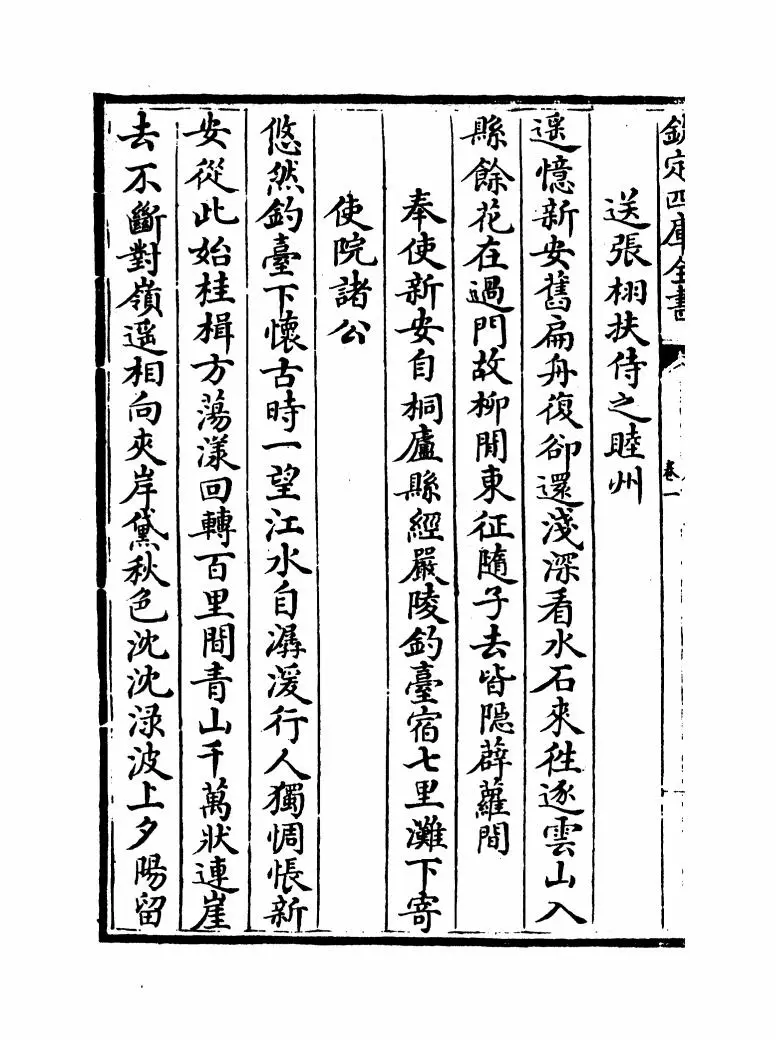 欽定四庫全書
卷一
送張栩扶侍之睦州
遥憶新安舊扁舟復卻還淺深看水石來徃逐雲山入
縣餘花在過門故柳閒東征隨子去皆隱薜蘿間
奉使新安自桐廬縣經嚴陵釣臺宿七里灘下寄
使院諸公
悠然釣臺下懷古時一望江水自潺湲行人獨惆悵新
安從此始桂楫方蕩漾回轉百里間青山千萬狀連崖
去不斷對嶺遥相向夾岸黛秋色沈沈渌波上夕陽留